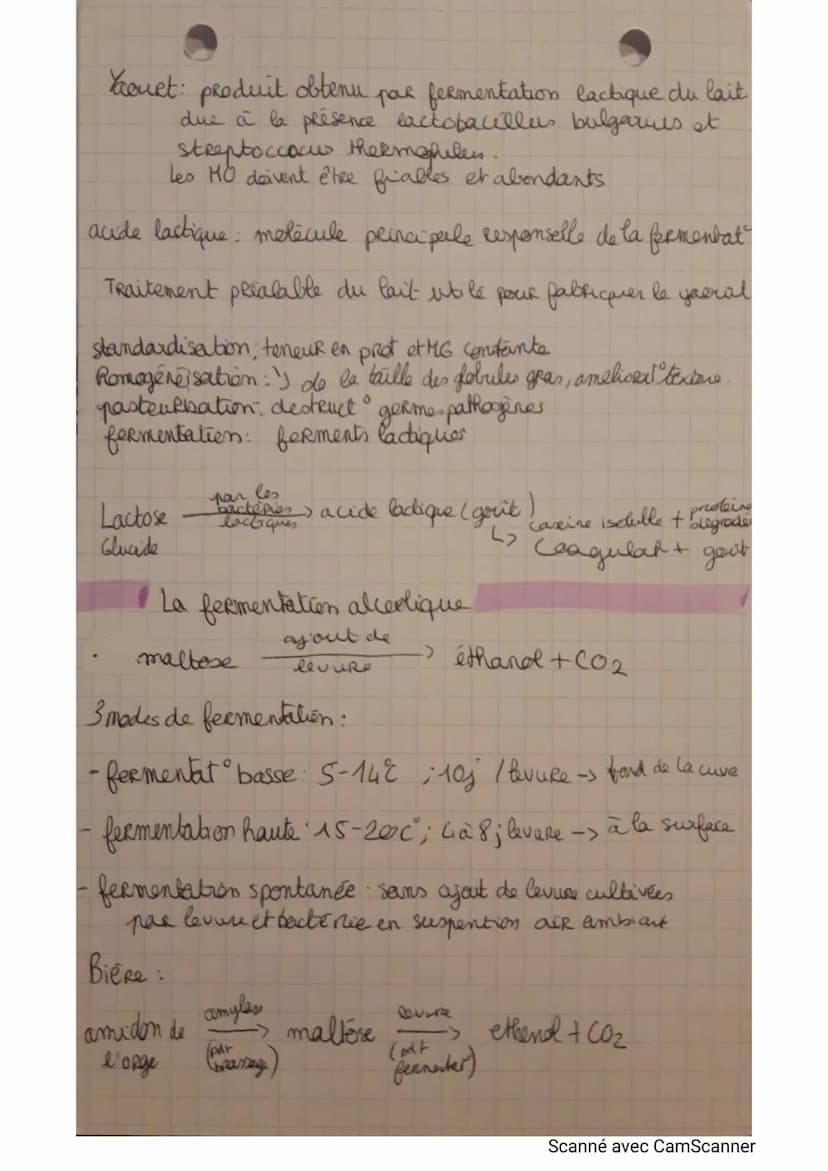 Yaouet: produit obtenu par fermentation lactique du lait
due à la présence lactobacillus bulgarius et
streptoccocus thermophiles.
Les MO doivent être friables et abondants
acide lactique: molécule principale responselle de la fermentat°
Traitement préalable du lait utile pour fabriquer le yaerat
standardisation; teneur en prot et MG constante
Romogénéisation: ↘ de la taille des globules gras, améliorat° texture.
pasteurisation: destruct° germes pathogènes
fermentation: ferments lactiques
par les
Lactose bactéries → acide lactique (goût)
lactiques
caseine isoluble + proteine dégradée
Glucide
↳ Coagulat + gout
La fermentation alcoolique
ajout de
• maltose → éthanol + CO2
levure
3 modes de fermentation:
- fermentat° basse: 5-14°C ; 10j / levure -> fond de la cuve
- fermentation haute: 15-20C°; 4 à 8j levure -> à la surface
- fermentation spontanée: sans ajout de levure cultivées
par levure et bactérie en suspention air ambiant
Bière:
amylase levure
amidon de → maltose → ethanol + CO2
l'orge (pdt brassage) (pdt fermenter)
Scanné avec CamScanner